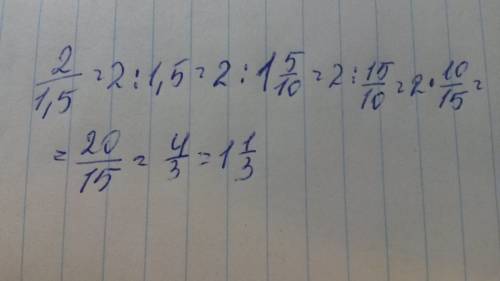 2/1,5 = 2 : 1,5 = 2 : 1 5/10 = 2 : 15/10 = 2 · 10/15 =
= 20/15 = 4/3 = 1 1/3